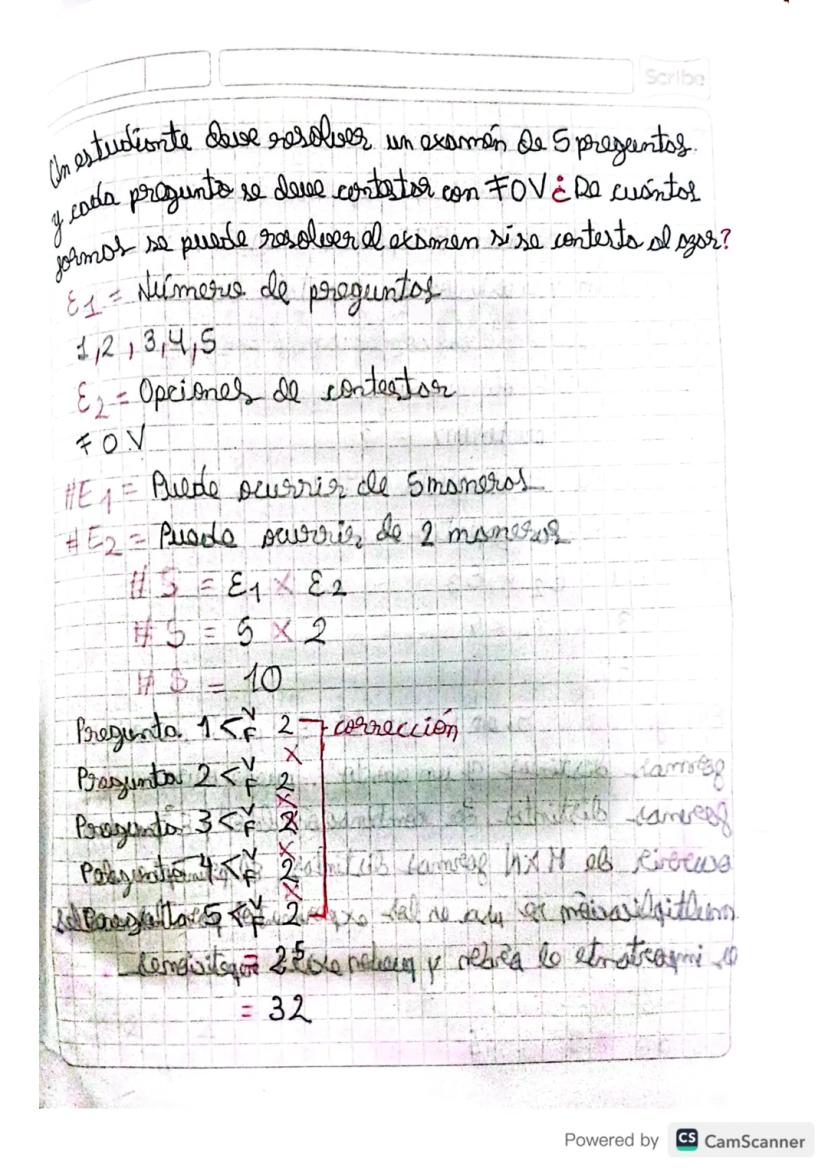 Scribe
Un estudiante deve resolver un examén de 5 preguntas.
y cada pregunta se deve contestar con F O V ¿De cuántas
formas se puede resolver el examen si se contesta al azar?
E1 = Número de preguntas
1,2,3,4,5
E2 = Opciones de contestar
F O V
#E1 = Puede ocurrir de 5 maneras
#E2 = Puede ocurrir de 2 maneras
# S = E1 x E2
# S = 5 x 2
# S = 10
Pregunta 1 < V F 2 corrección
x
Pregunta 2 < V F 2
x
Pregunta 3 < V F 2
x
Pregunta 4 < V F 2
x
Pregunta 5 < V F 2
= 2⁵
= 32
Powered by CS CamScanner